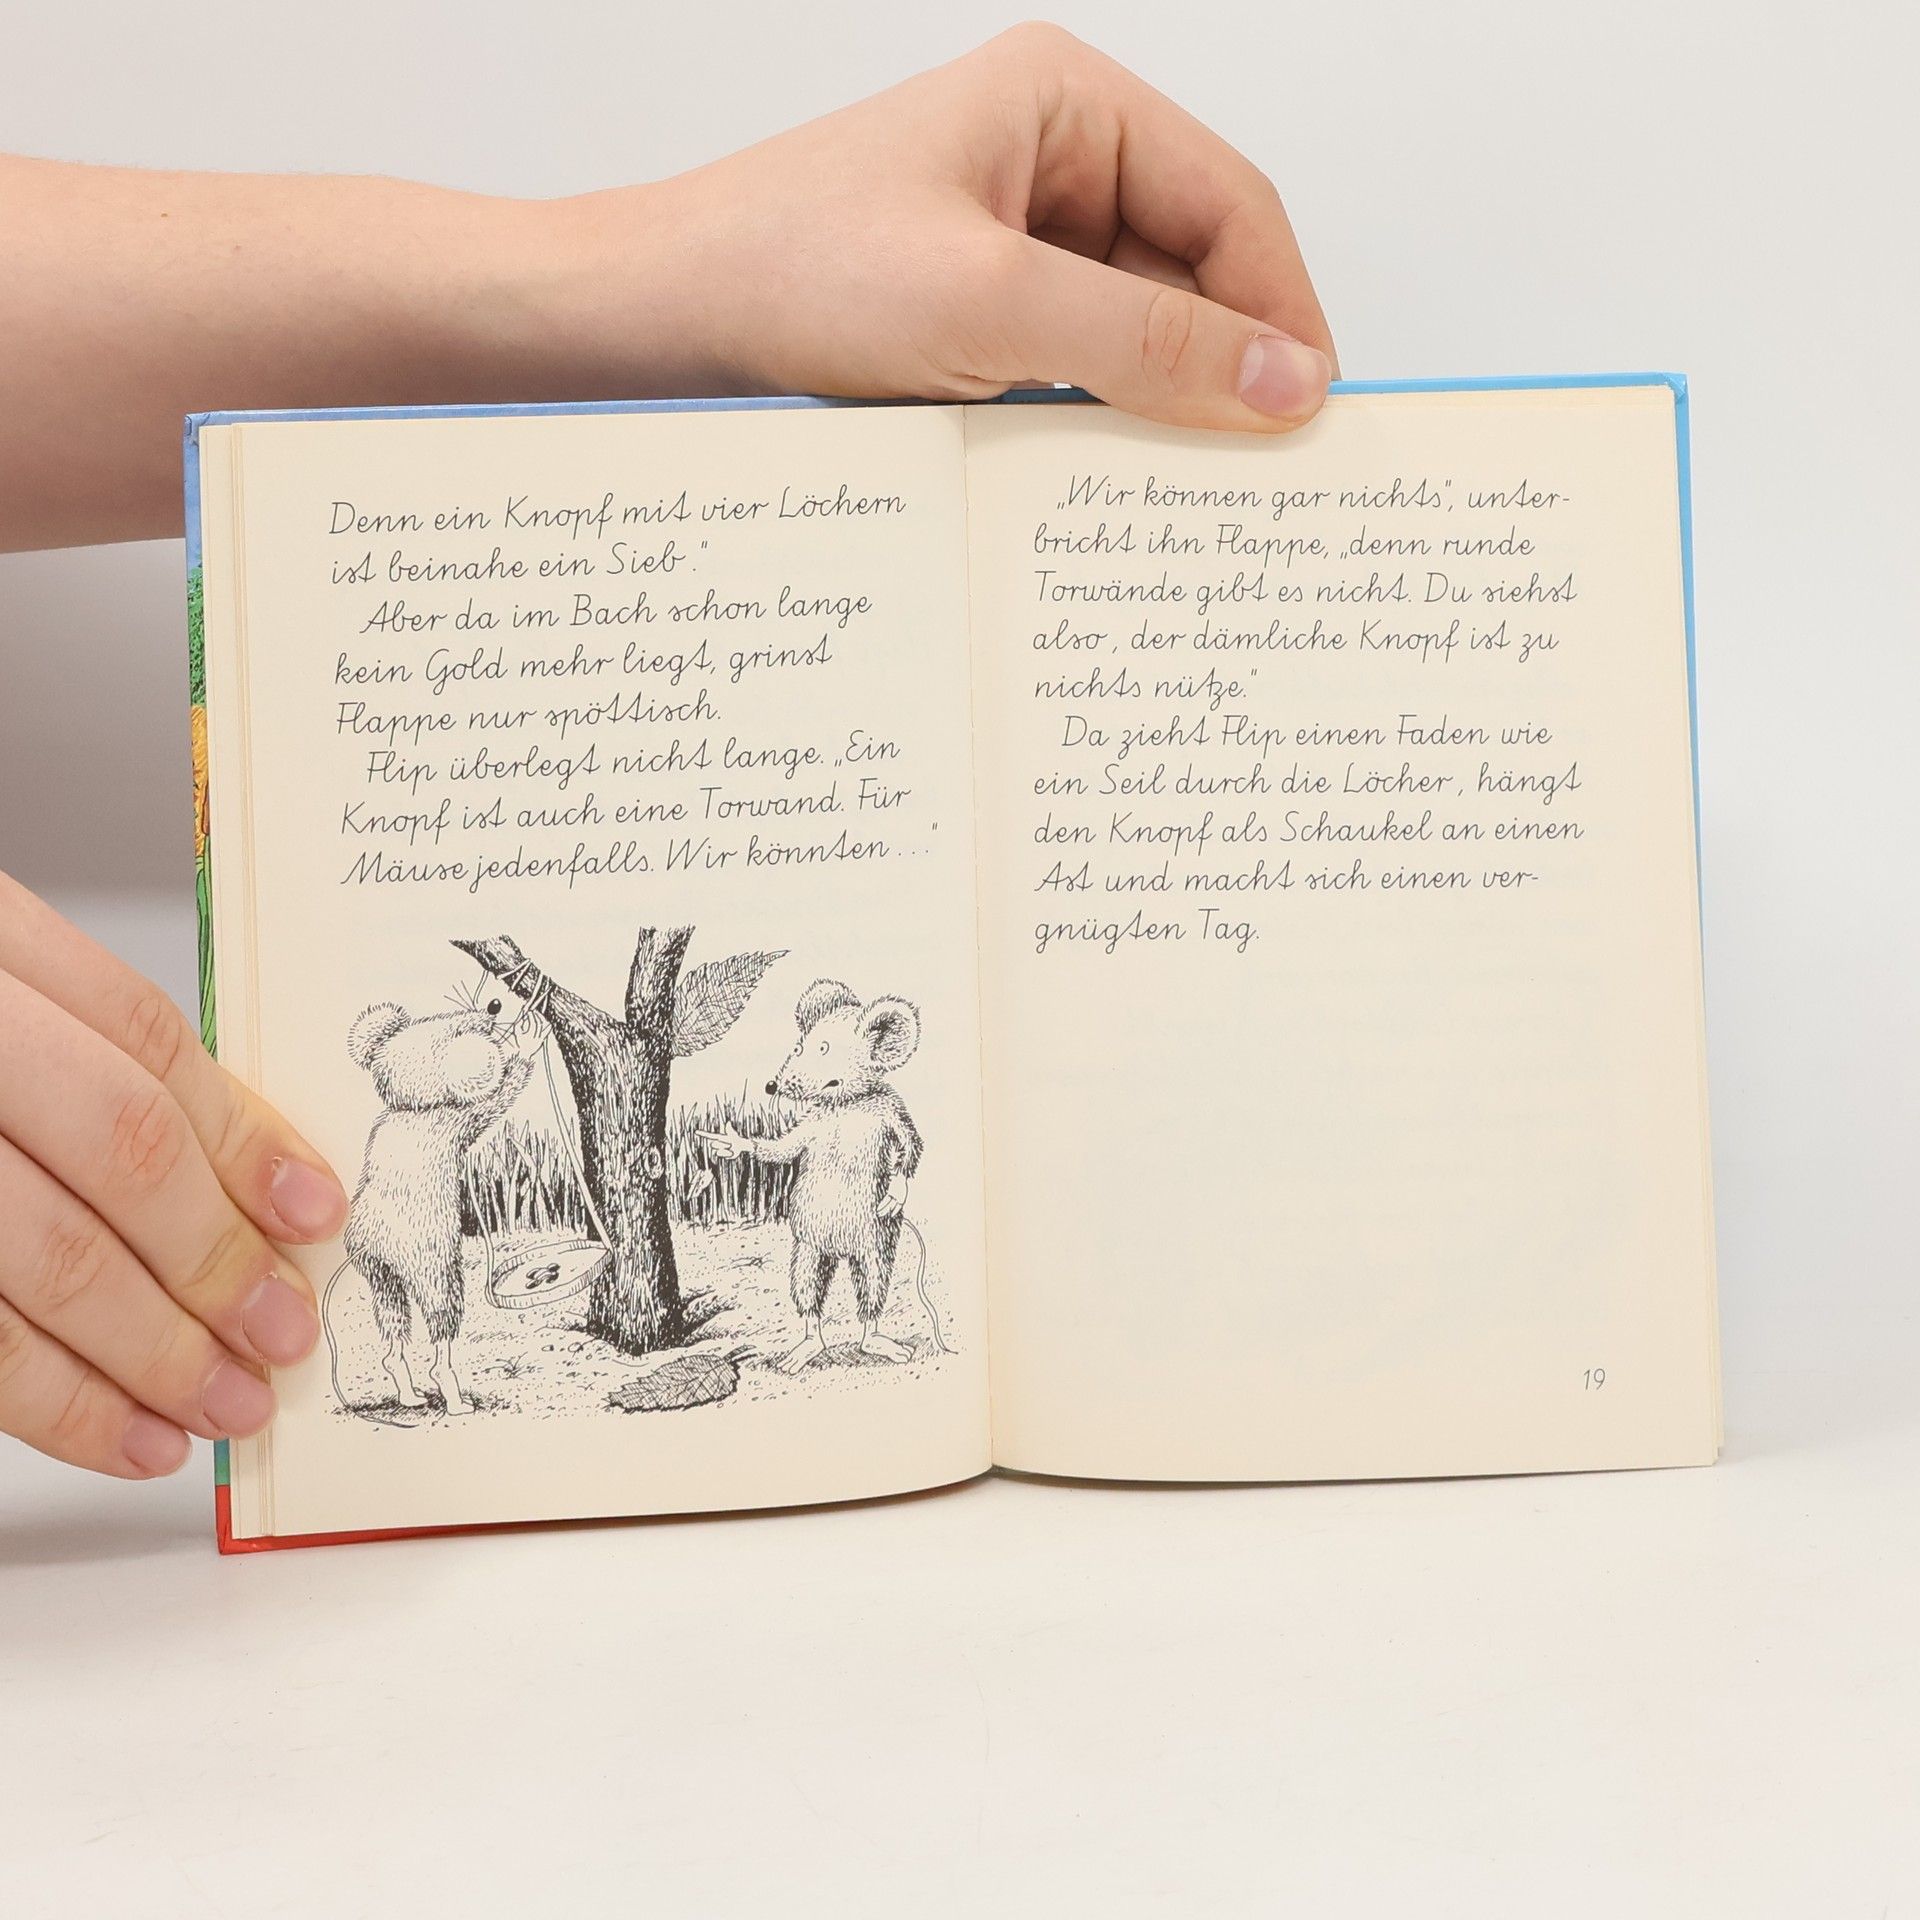 Denn ein Knopf mit vier Löchern
ist beinahe ein Sieb."
Aber da im Bach schon lange
kein Gold mehr liegt, grinst
Flappe nur spöttisch.
Flip überlegt nicht lange. „Ein
Knopf ist auch eine Torwand. Für
Mäuse jedenfalls. Wir könnten ..."
„Wir können gar nichts", unter-
bricht ihn Flappe, „denn runde
Torwände gibt es nicht. Du siehst
also, der dämliche Knopf ist zu
nichts nütze."
Da zieht Flip einen Faden wie
ein Seil durch die Löcher, hängt
den Knopf als Schaukel an einen
Ast und macht sich einen ver-
gnügten Tag.
19